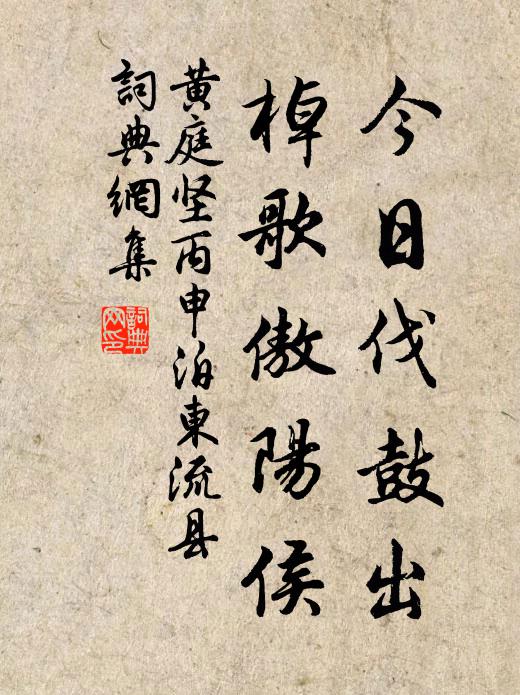 今日伐鼓出
棹歌傲陽侯
黄庭坚丙申泊東流县
詞典網集
詞典網印